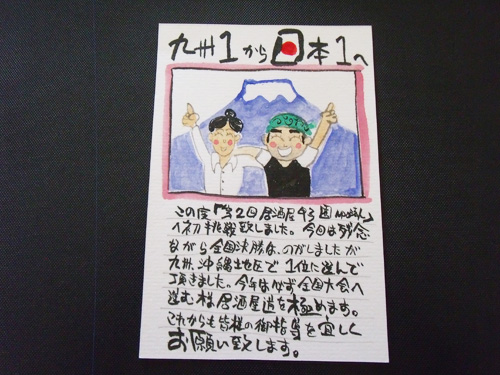 九州1から日本1へ
この度「第2回居酒屋甲子園
へ初挑戦致しました。今回は残念
ながら全国決勝は、のがしましたが
九州、沖縄地区で1位に選んで
頂きました。今年は必ず全国大会へ
進む様居酒屋道を極めます。
これからも皆様の御指導を宜しく
お願い致します。